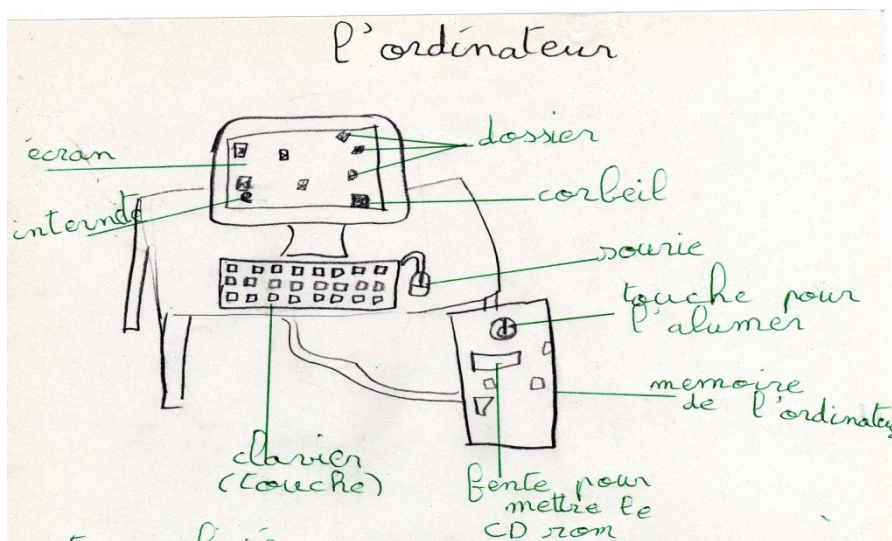 l'ordinateur
écran
internet
dossier
corbeil
sourie
touche pour
l'alumer
memoire
de l'ordinateur
clavier
(touche)
fente pour
mettre le
CD rom